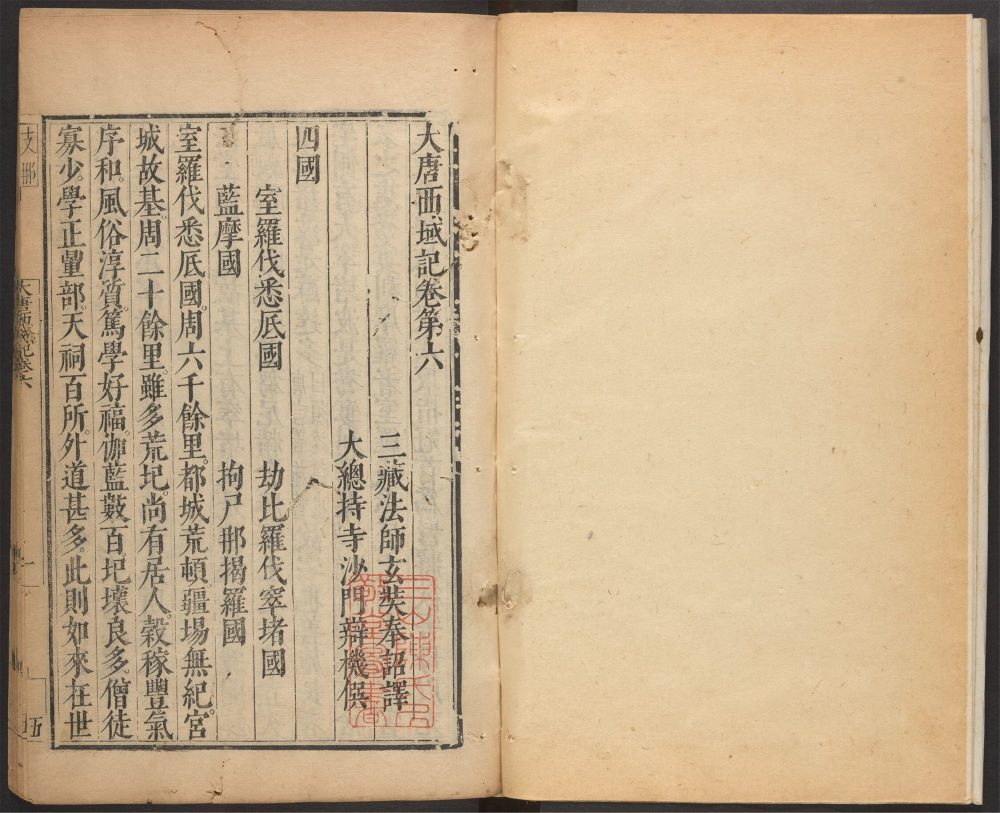 大唐西域記卷第六
三藏法師玄奘奉詔譯
大總持寺沙門辯機撰
四國
室羅伐悉厎國 劫比羅伐窣堵國
藍摩國 拘尸那揭羅國
室羅伐悉厎國。周六千餘里。都城荒頓疆場無紀。宮
城故基。周二十餘里雖多荒圯。尚有居人。穀稼豐氣
序和。風俗淳質。篤學好福。伽藍數百。圯壞良多。僧徒
寡少。學正量部。天祠百所。外道甚多。此則如來在世
支那
大唐西域記卷六
一